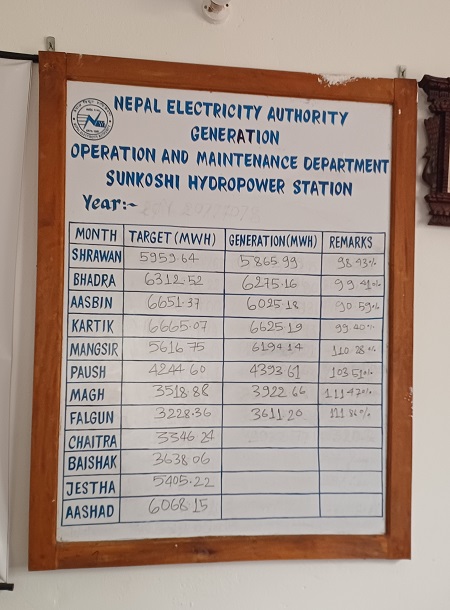 NEPAL ELECTRICITY AUTHORITY
GENERATION
OPERATION AND MAINTENANCE DEPARTMENT
SUNKOSHI HYDROPOWER STATION
Year:-
MONTH TARGET (MWH) GENERATION(MWH) REMARKS
SHRAWAN 5959.64 5865.99 98.43%
BHADRA 6312.52 6275.16 99.41%
AASBIN 6651.37 6025.18 90.59%
KARTIK 6665.07 6625.19 99.40%
MANGSIR 5616.75 6194.14 110.28%
PAUSH 4244.60 4393.61 103.51%
MAGH 3518.88 3922.66 111.47%
FALGUN 3228.36 3611.20 111.86%
CHAITRA 3346.24
BAISHAK 3638.06
JESTHA 5405.22
AASHAD 6068.15